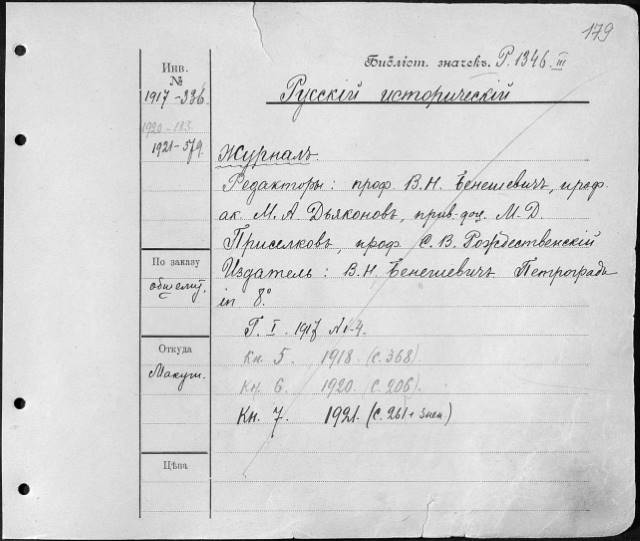 179
Библіот. значекъ. P. 1346 III
Инв.
№
1917-336.
1920-113.
1921-579.
Русскій историческій
Журналъ.
Редакторы: проф. В. Н. Бенешевичъ, проф.
ак. М. А. Дьяконовъ, прив.-доц. М. Д.
Приселковъ, проф. С. В. Рождественскій
Издатель: В. Н. Бенешевичъ. Петроградъ
in 8.º
Г. I. 1917 № 1-4.
Кн. 5. 1918 (с. 368)
Кн. 6. 1920 (с. 206).
Кн. 7. 1921. (с. 261 + 3 нен.)
По заказу
Откуда
Макуш.
Цѣна